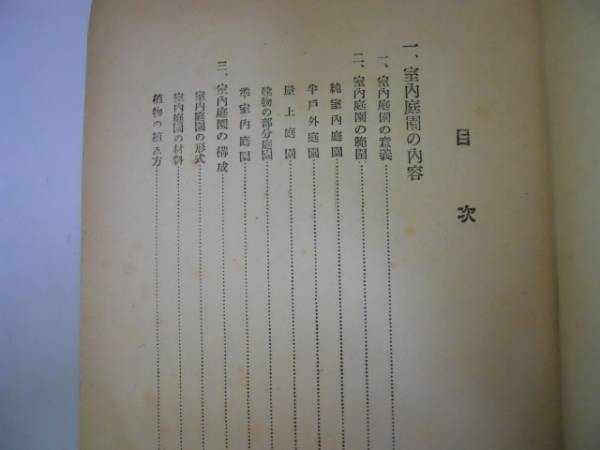 目次
一、室内庭園の内容
一、室内庭園の意義
二、室内庭園の範囲
純室内庭園
半戸外庭園
屋上庭園
建物の部分庭園
準室内庭園
三、室内庭園の構成
室内庭園の形式
室内庭園の材料
植物の植ゑ方